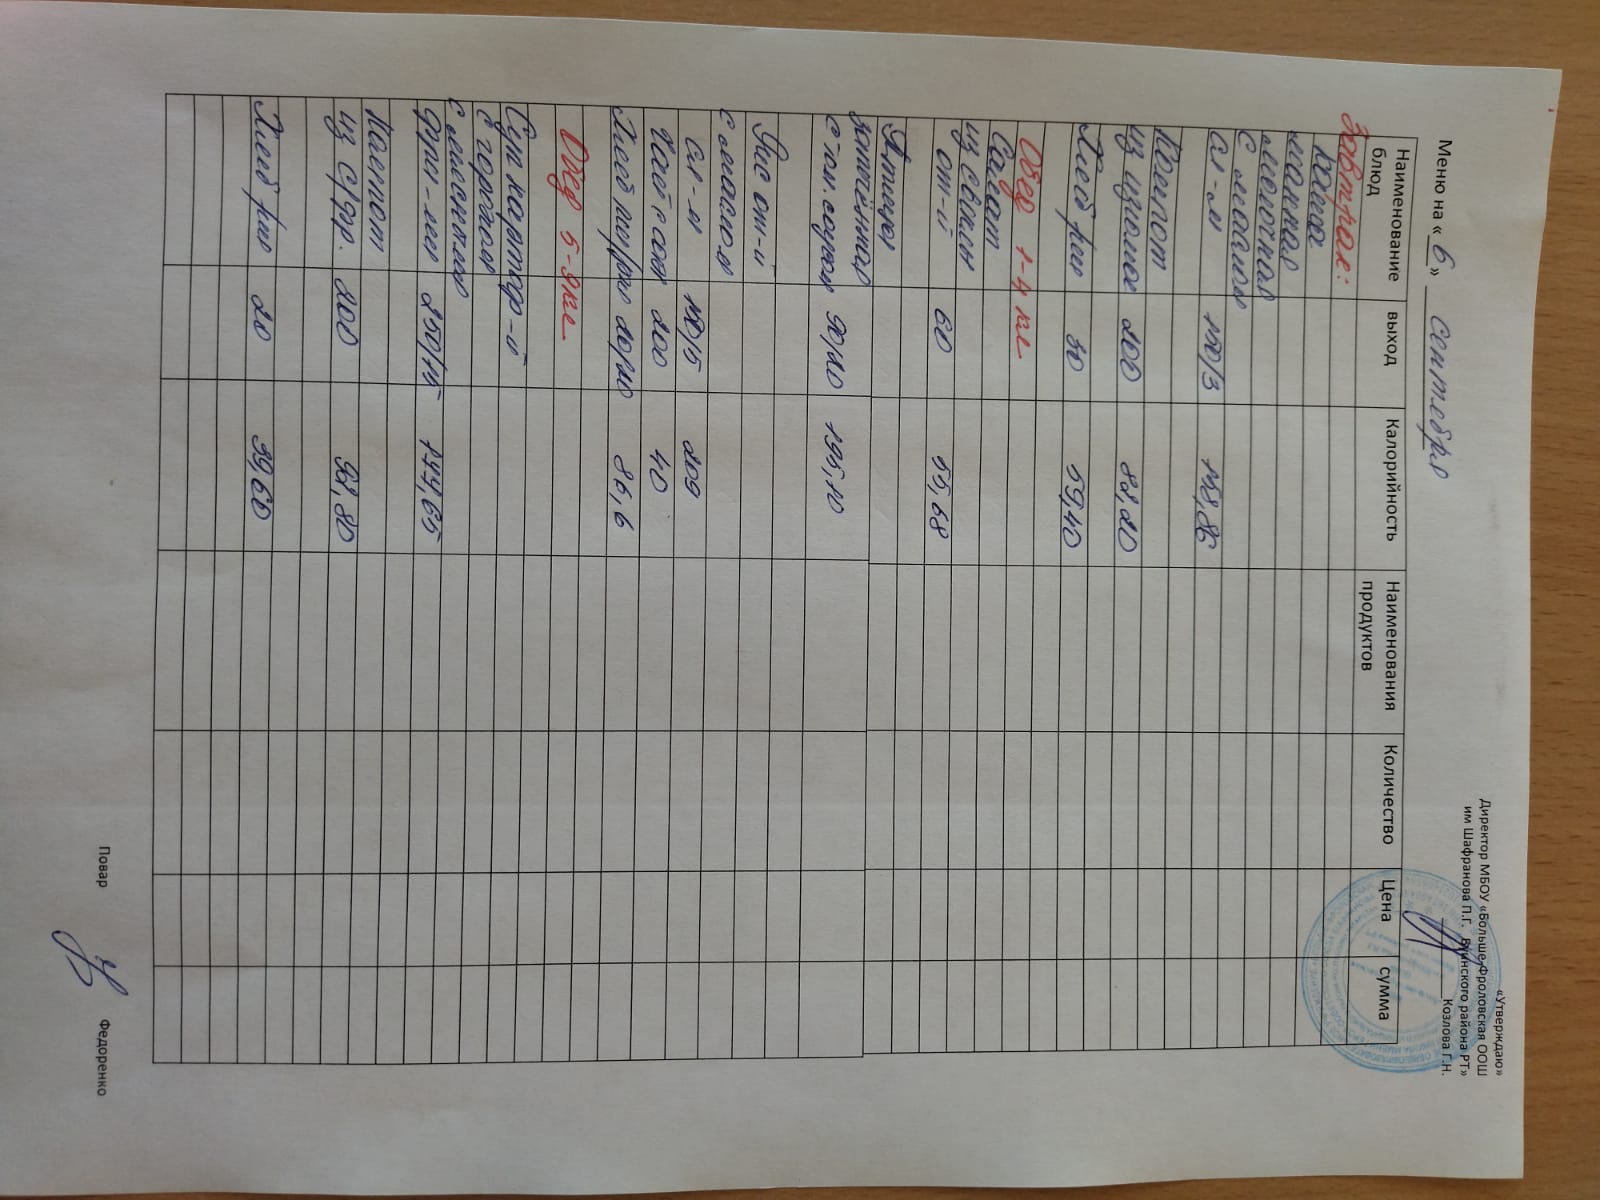 «Утверждаю»
Директор МБОУ «Больше-Фроловская ООШ
им Шафранова П.Г. Буинского района РТ»
Козлова Г.Н.
Меню на « 6 » сентября
Наименование блюд
выход
Калорийность
Наименования продуктов
Количество
Цена
сумма
Завтрак:
Каша
манная
молочная
с маслом
сл-м 150/3
Компот
из изюма 200 88,20
Хлеб рж 30 59,40
Обед 1-4 кл
Салат
из свеклы
от-й 60 55,68
Птица
запечённая
с том. соусом 90/20 195,20
Рис от-й
с маслом
сл-м 209
Чай с сах 200 40
Хлеб пш/рж 20/20 86,6
Обед 5-9кл
Суп картоф-й
с горохом
с мясными
фри-ми 250/15 144,65
Компот
из с/фр. 200 91,80
Хлеб рж 20 39,60
Повар
Федоренко